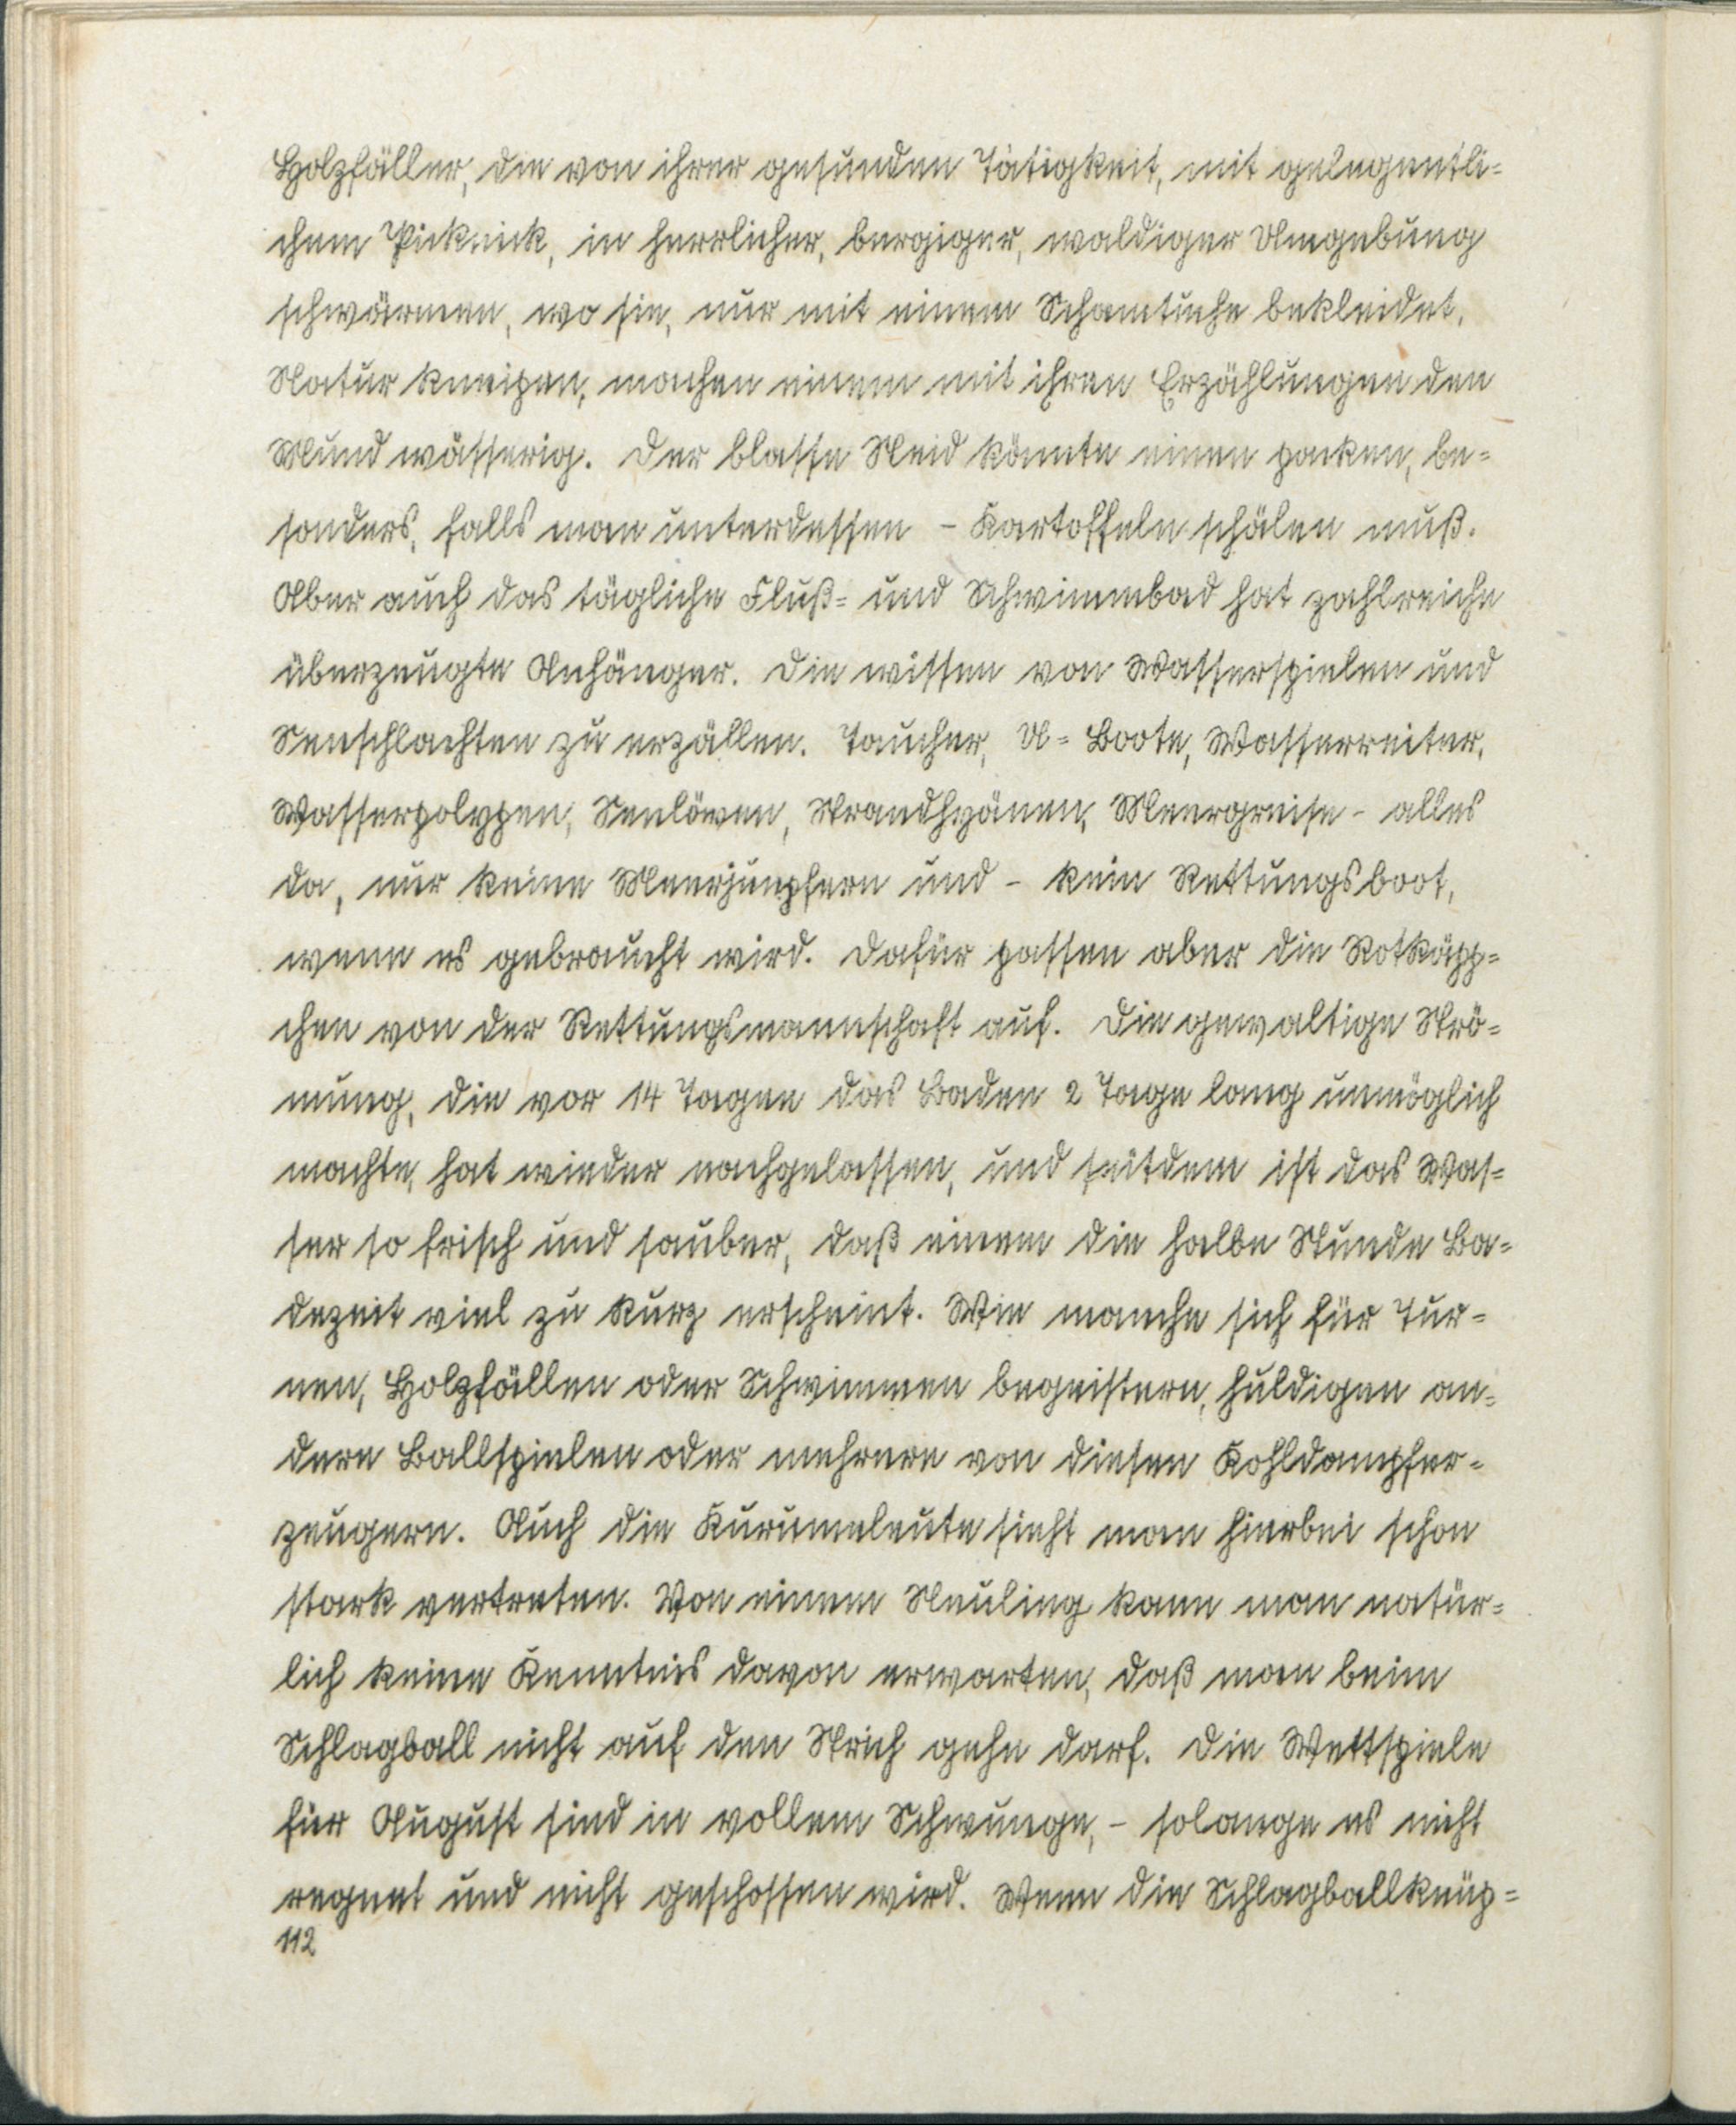 Holzfäller, die von ihrer gesunden Tätigkeit, mit gelegentli-
chem Picknick, in herrlicher, bergiger, waldiger Umgebung
schwärmen, wo sie, nur mit einem Schamtuche bekleidet,
Natur kneipen, machen einem mit ihren Erzählungen den
Mund wässerig. Der blasse Neid könnte einen packen, be-
sonders, falls man unterdessen - Kartoffeln schälen muß.
Aber auch das tägliche Fluß- und Schwimmbad hat zahlreiche
überzeugte Anhänger. Die wissen von Wasserspielen und
Seeschlachten zu erzällen. Taucher, U-Boote, Wasserreiter,
Wasserpolypen, Seelöwen, Strandhyänen, Meergreise - alles
da, nur keine Meerjungfern und - kein Rettungsboot,
wenn es gebraucht wird. Dafür passen aber die Rotkäpp-
chen von der Rettungsmannschaft auf. Die gewaltige Strö-
mung, die vor 14 Tagen das Baden 2 Tage lang unmöglich
machte, hat wieder nachgelassen, und seitdem ist das Was-
ser so frisch und sauber, daß einem die halbe Stunde Ba-
dezeit viel zu kurz erscheint. Wie manche sich für Tur-
nen, Holzfällen oder Schwimmen begeistern, huldigen an-
dere Ballspielen oder mehrere von diesen Kohldampfer-
zeugern. Auch die Kurumeleute sieht man hierbei schon
stark vertreten. Von einem Neuling kann man natür-
lich keine Kenntnis davon erwarten, daß man beim
Schlagball nicht auf den Strich gehe darf. Die Wettspiele
für August sind in vollem Schwunge, - solange es nicht
regnet und nicht geschossen wird. Wenn die Schlagballknüp-
112